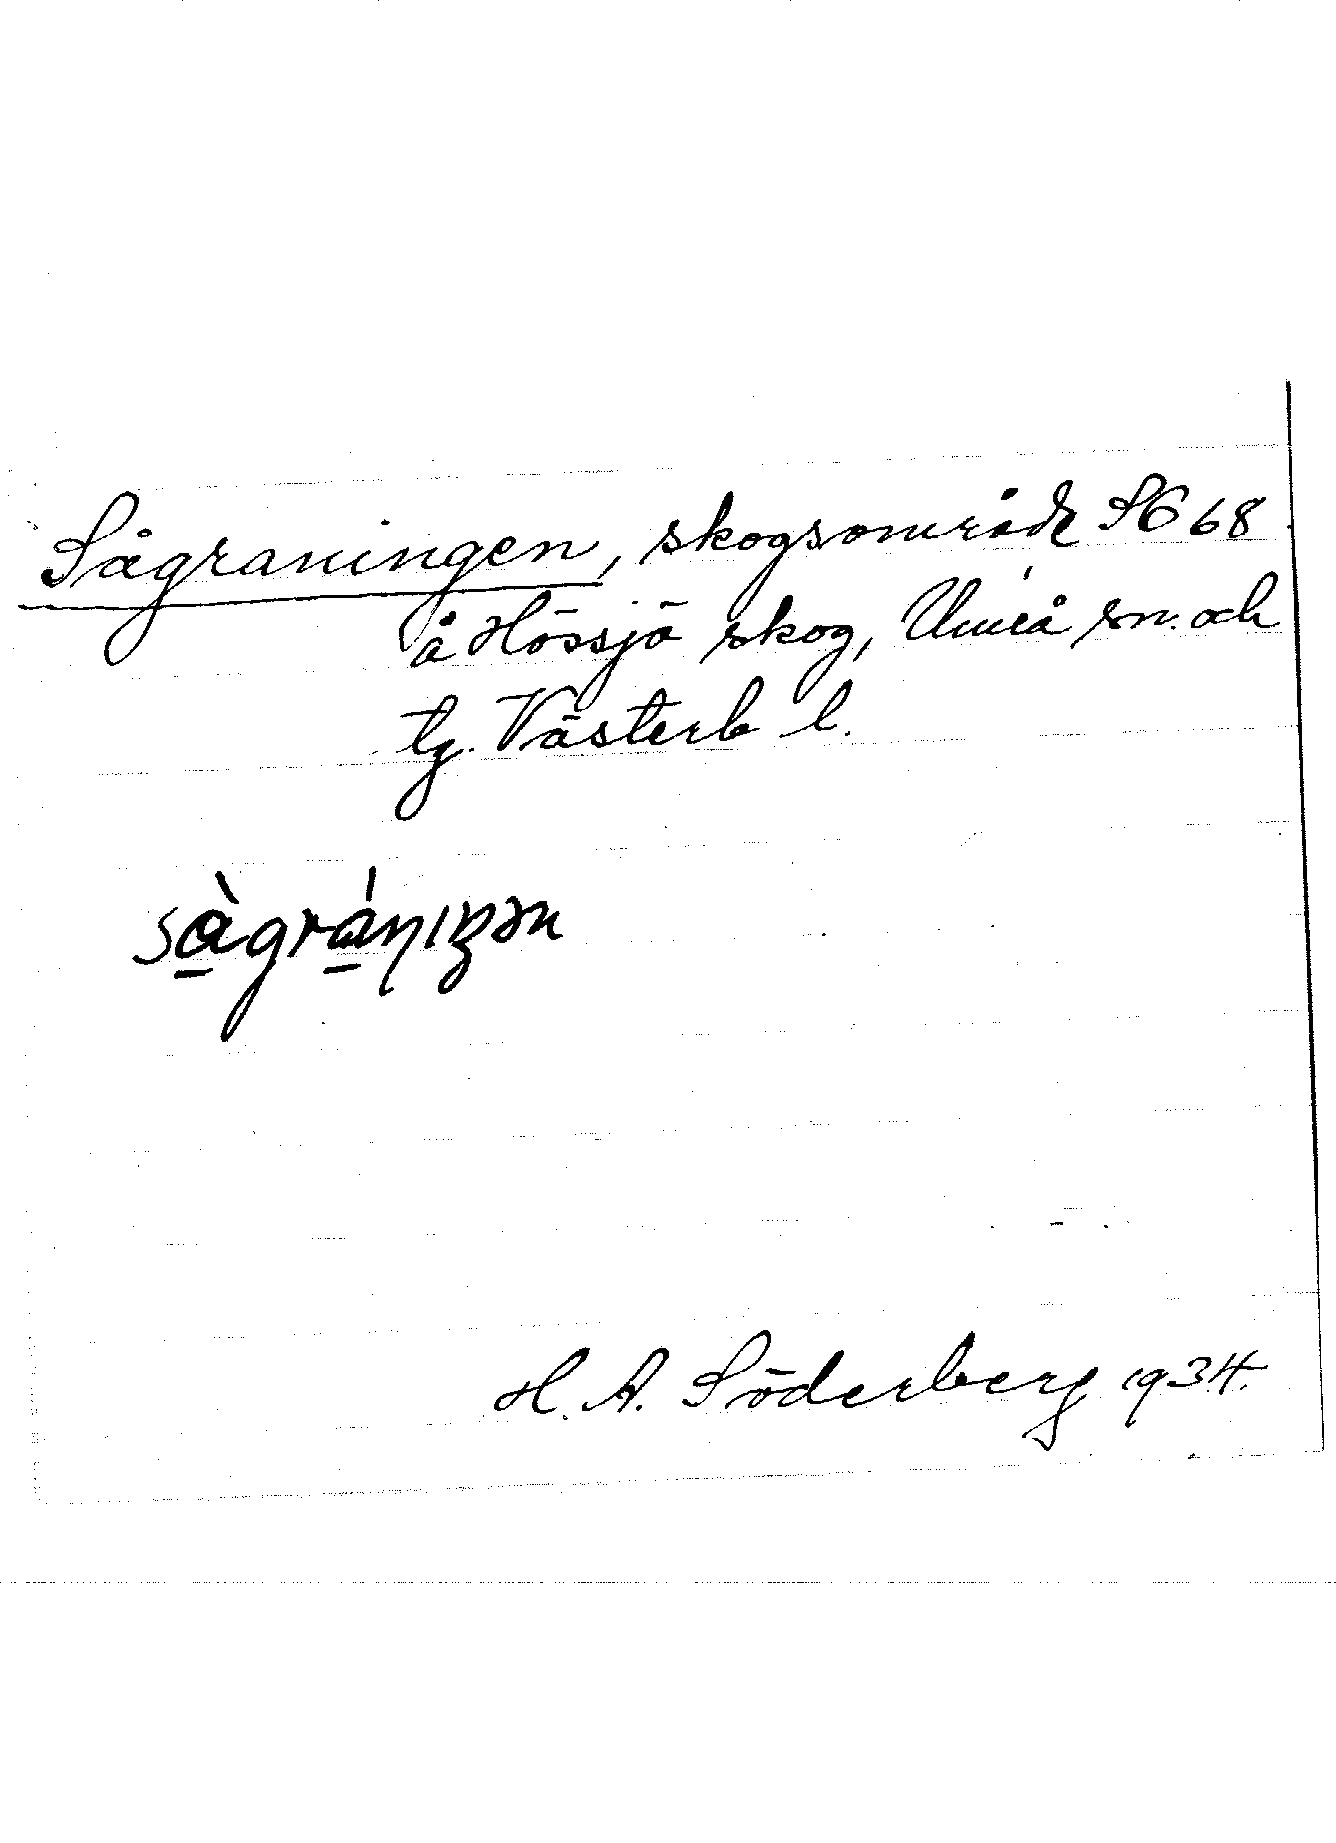 Sågraningen, skogsområde SG 68
å Hössjö skog, Umeå sn. och
tg. Västerb l.
sàgránıŋən
H. A. Söderberg 1934.